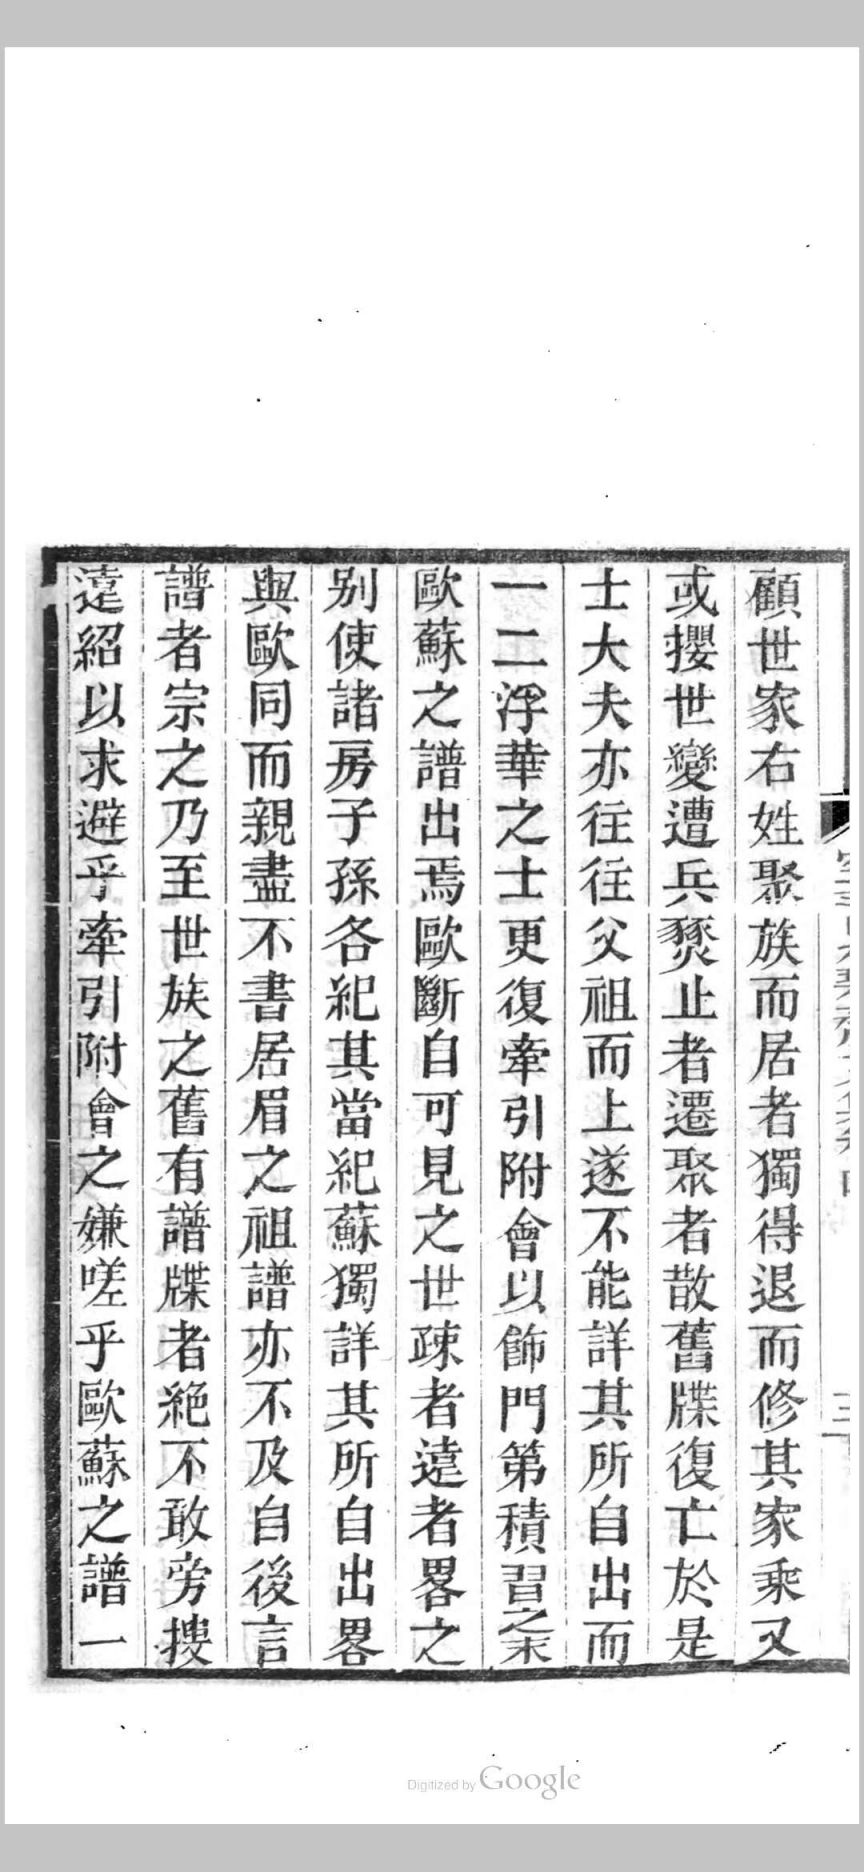 顧世家右姓聚族而居者獨得退而修其家乘又
或攖世變遭兵燹止者遷聚者散舊牒復亡於是
士大夫亦往往父祖而上遂不能詳其所自出而
一二浮華之士更復牽引附會以飾門第積習之末
歐蘇之譜出焉歐斷自可見之世疎者遠者畧之
別使諸房子孫各紀其當紀蘇獨詳其所自出畧
與歐同而親盡不書居眉之祖譜亦不及自後言
譜者宗之乃至世族之舊有譜牒者絕不敢旁摟
遠紹以求避乎牽引附會之嫌嗟乎歐蘇之譜一
Digitized by Google